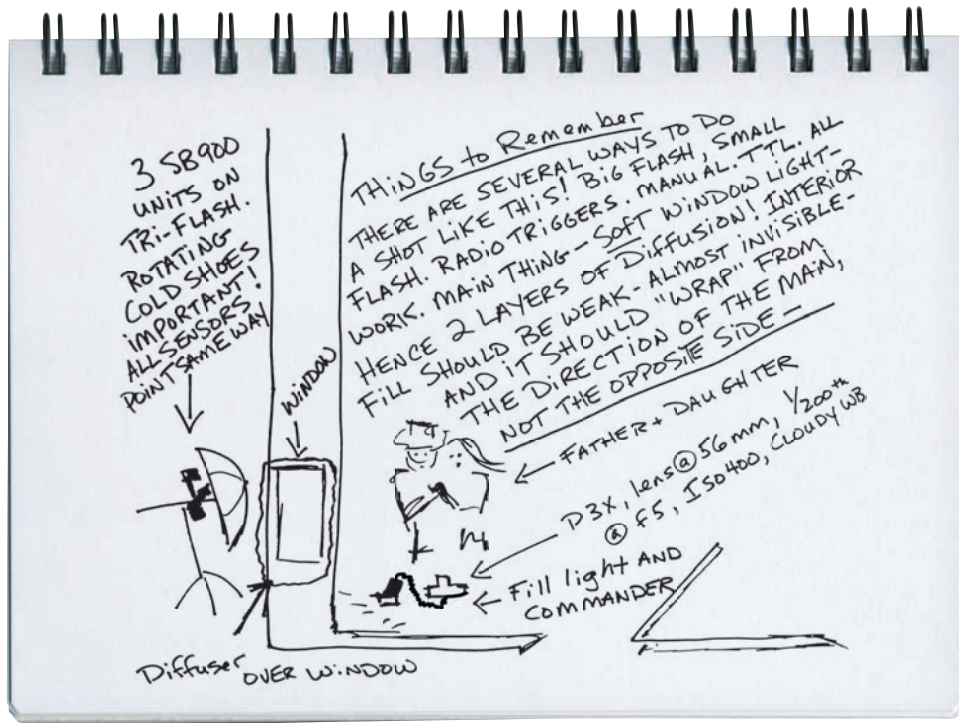 3 SB900
UNITS ON
TRI-FLASH.
ROTATING
COLD SHOES
IMPORTANT!
ALL SENSORS!
POINT SAME WAY
WINDOW
THINGS to Remember
THERE ARE SEVERAL WAYS TO DO
A SHOT LIKE THIS! BIG FLASH, SMALL
FLASH. RADIO TRIGGERS. MANUAL. TTL. ALL
WORK. MAIN THING - SOFT WINDOW LIGHT-
HENCE 2 LAYERS OF DIFFUSION! INTERIOR
FILL SHOULD BE WEAK - ALMOST INVISIBLE-
AND IT SHOULD "WRAP" FROM
THE DIRECTION OF THE MAIN,
NOT THE OPPOSITE SIDE -
FATHER + DAUGHTER
D3X, lens @ 56mm, 1/200th
@ f5, ISO 400, CLOUDY WB
Fill light AND
COMMANDER
Diffuser OVER WINDOW